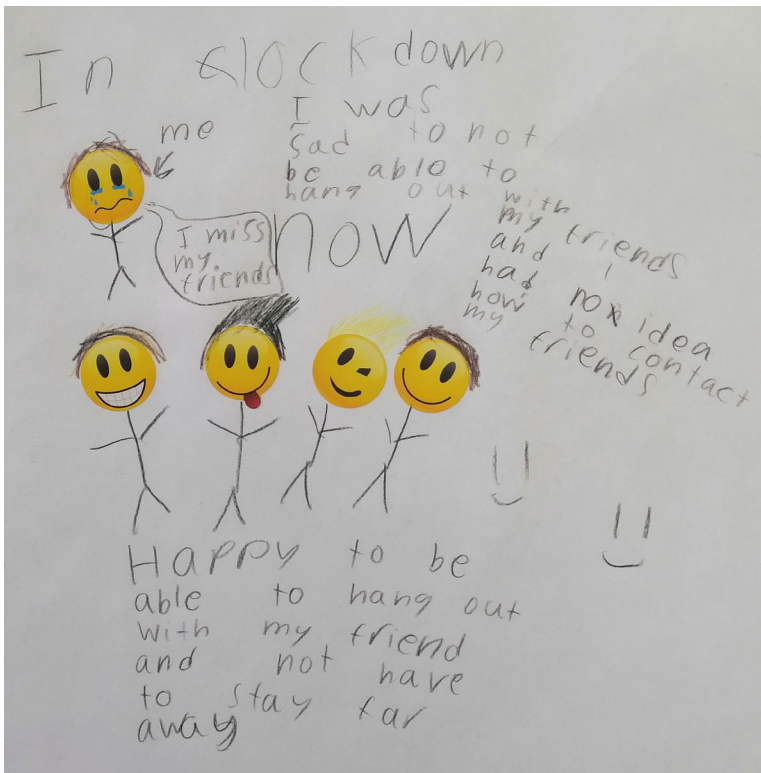 In lockdown
me
I was
sad to not
be able to
hang out with
my friends
and I
had no idea
how to contact
my friends
I miss
my
friends
now
Happy to be
able to hang out
with my friend
and not have
to stay far
away